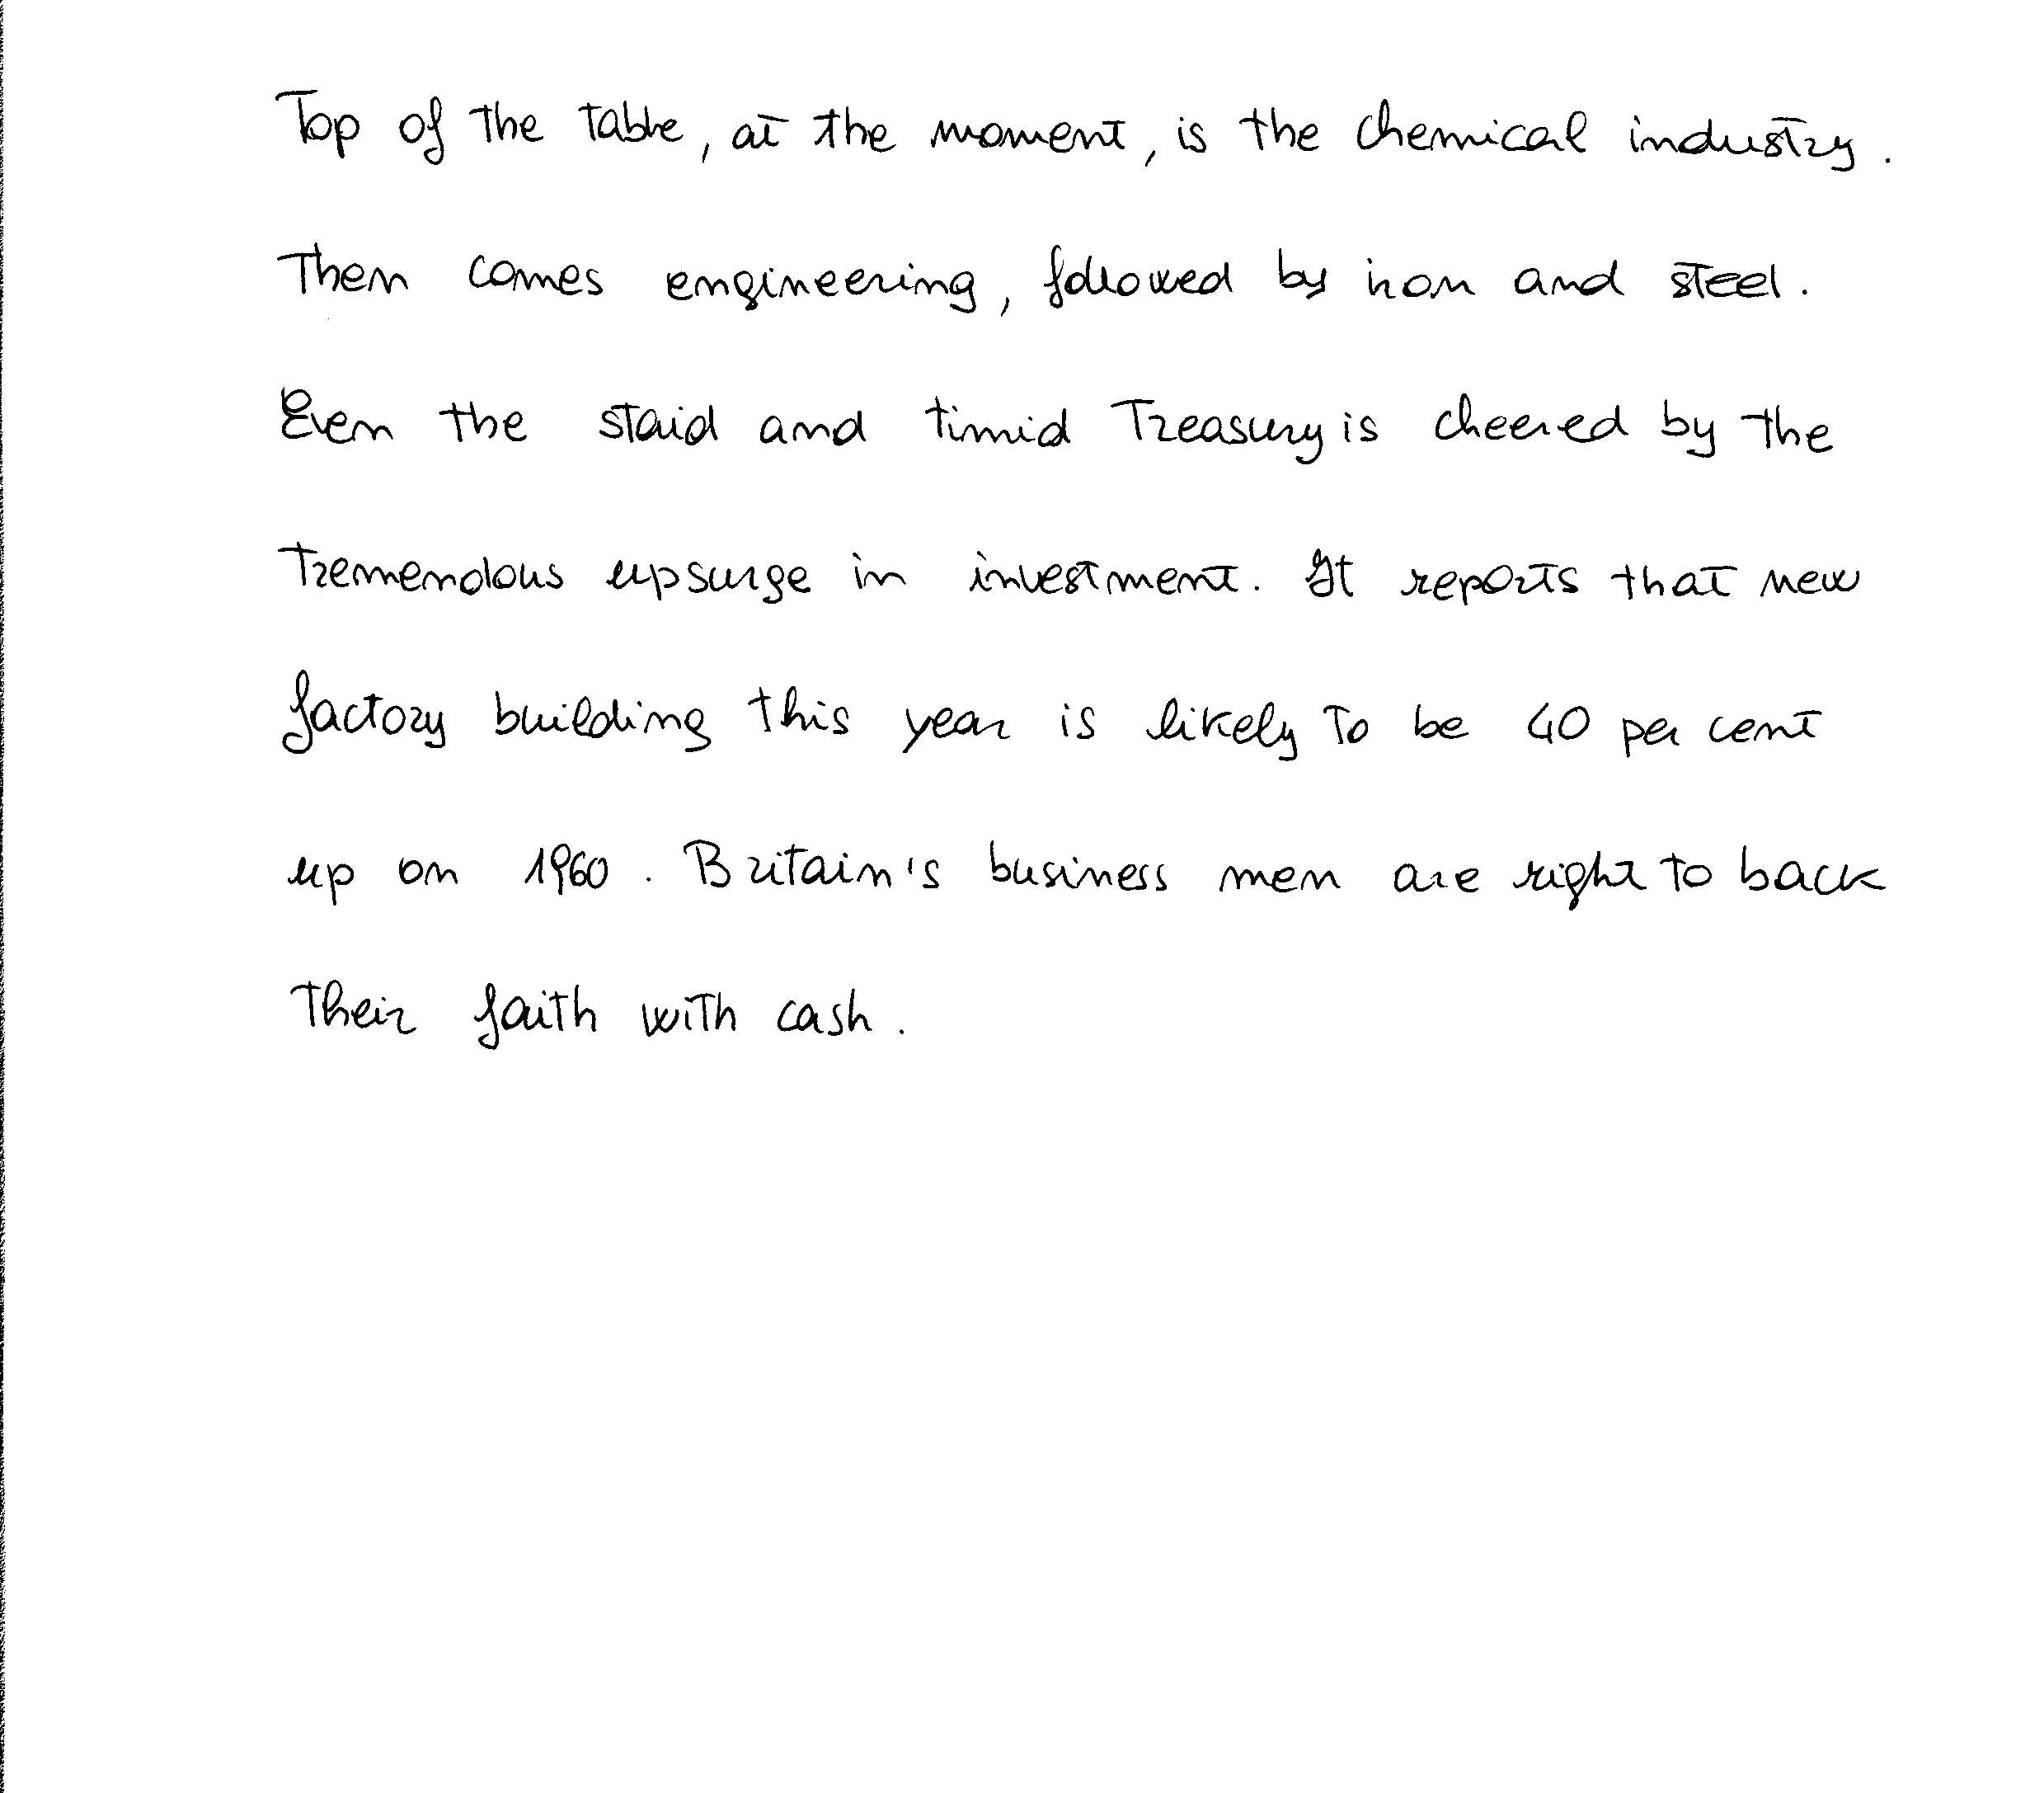 Top of the table, at the moment, is the chemical industry.
Then comes engineering, followed by iron and steel.
Even the staid and timid Treasury is cheered by the
tremendous upsurge in investment. It reports that new
factory building this year is likely to be 40 per cent
up on 1960. Britain's business men are right to back
their faith with cash.